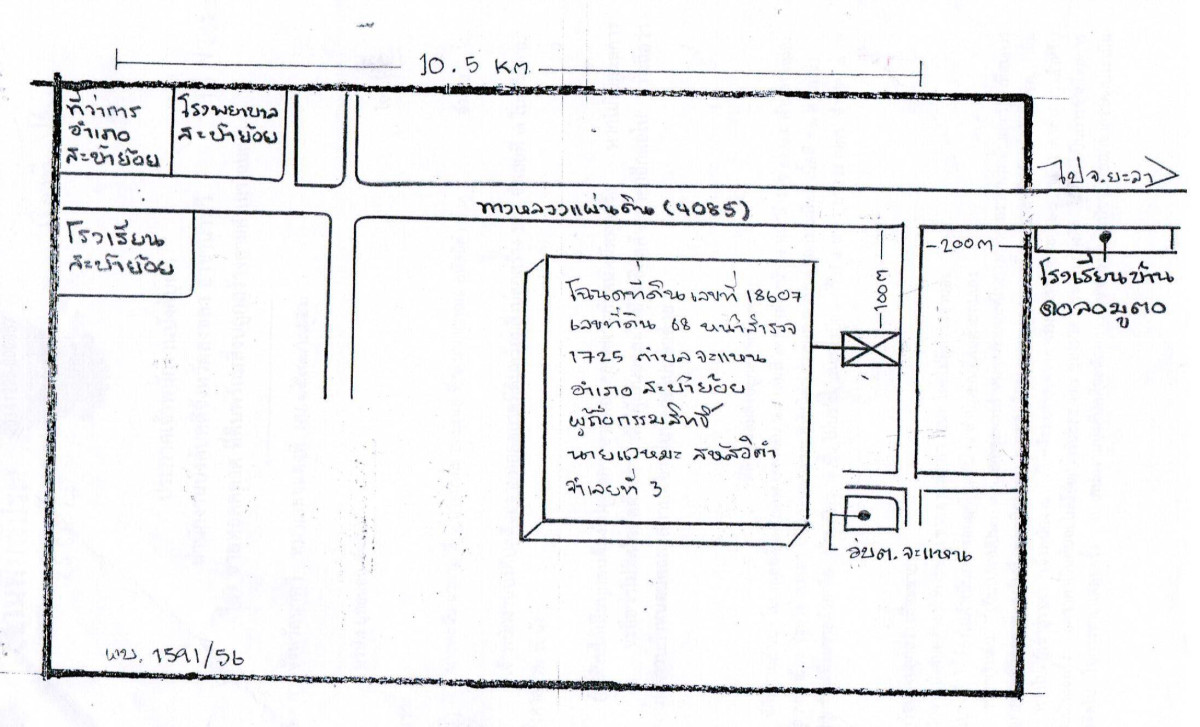 10.5 KM.
ที่ว่าการ
อำเภอ
สะบ้าย้อย
โรงพยาบาล
สะบ้าย้อย
ไป จ.ยะลา
ทางหลวงแผ่นดิน (4085)
โรงเรียน
สะบ้าย้อย
200 m
โรงเรียนบ้าน
ตอลอมูตอ
100 m
โฉนดที่ดินเลขที่ 18607
เลขที่ดิน 68 หน้าสำรวจ
1725 ตำบล จะแหน
อำเภอ สะบ้าย้อย
ผู้ถือกรรมสิทธิ์
นายแวหมะ
จำเลยที่ 3
อบต. จะแหน
ผบ. 1591/56